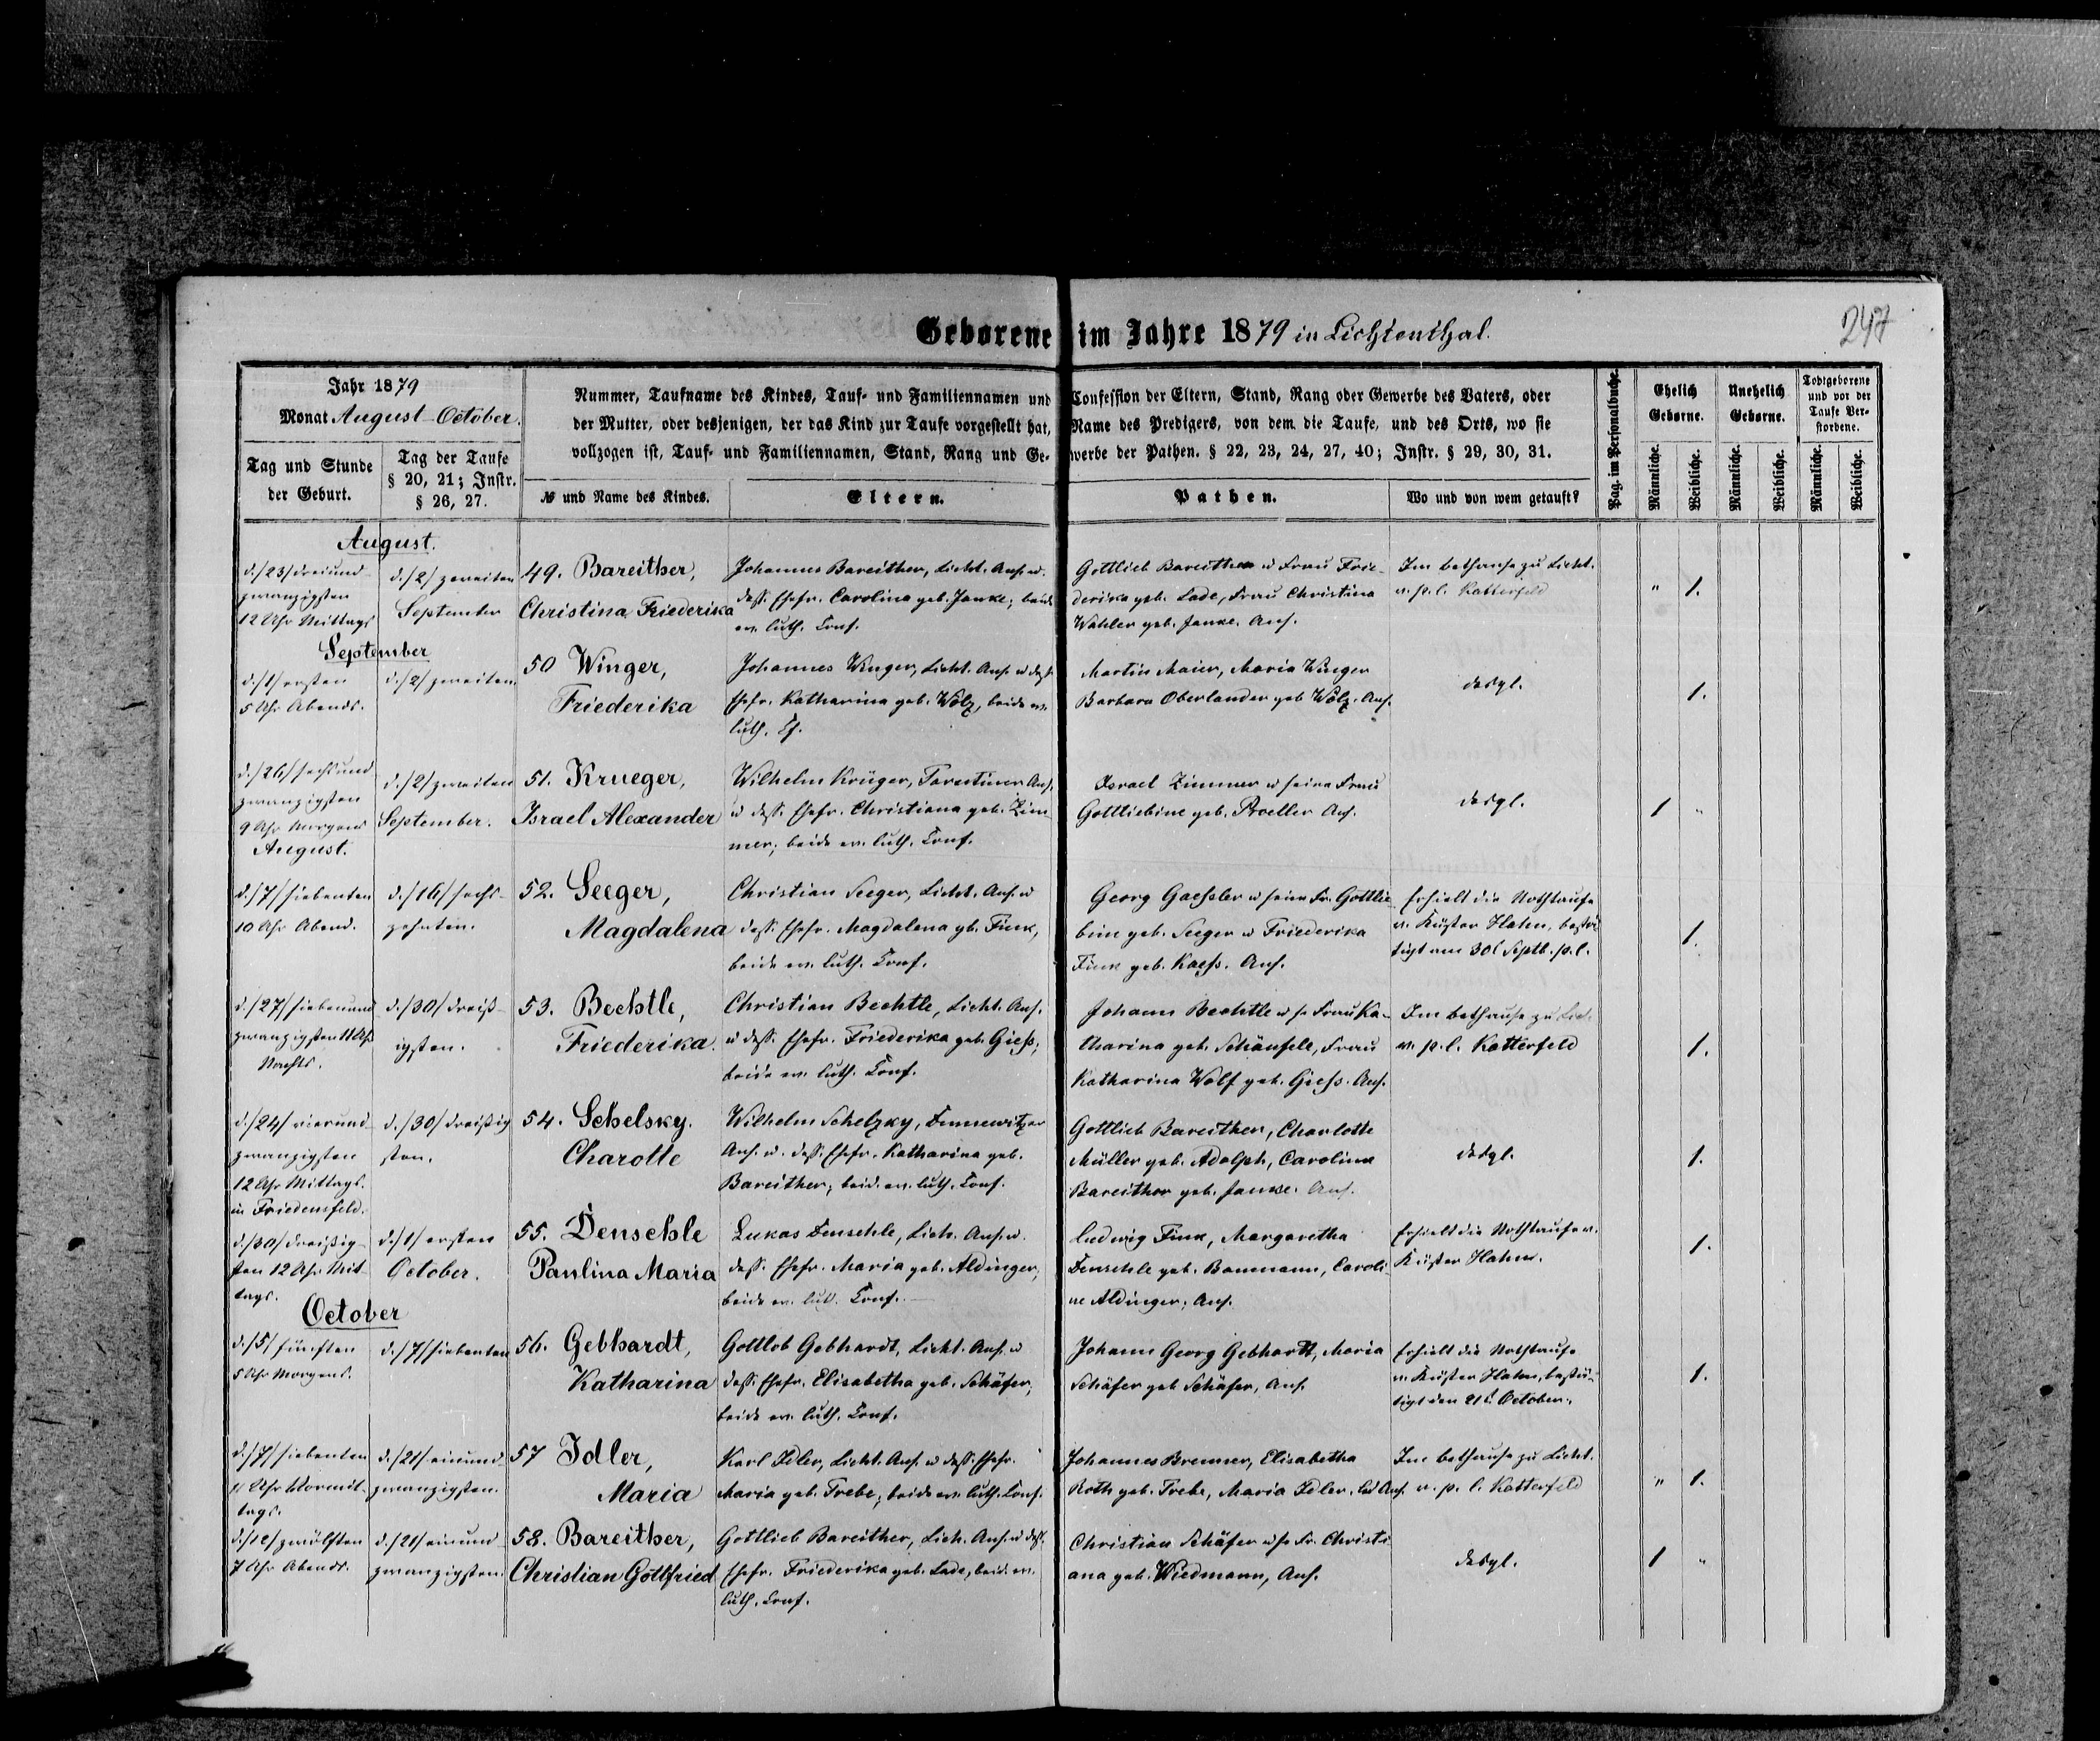 247
Geborene im Jahre 1879 in Lichtenthal.
Jahr 1879
Monat August-October.
Tag und Stunde der Geburt.
Tag der Taufe § 20, 21; Instr. § 26, 27.
Nummer, Taufname des Kindes, Tauf- und Familiennamen und Confession der Eltern, Stand, Rang oder Gewerbe des Vaters, oder
der Mutter, oder desjenigen, der das Kind zur Taufe vorgestellt hat, Name des Predigers, von dem die Taufe, und des Orts, wo sie
vollzogen ist, Tauf- und Familiennamen, Stand, Rang und Gewerbe der Pathen. § 22, 23, 24, 27, 40; Instr. § 29, 30, 31.
№ und Name des Kindes.
Eltern.
Pathen.
Wo und von wem getauft?
Pag. im Personalbuche.
Ehelich Geborne.
Unehelich Geborne.
Todtgeborene und vor der Taufe Verstorbene.
Männliche. Weibliche. Männliche. Weibliche. Männliche. Weibliche.
August.
d./23/dreiund-
zwanzigsten
12 Uhr Mittags
d./2/ zweiten
September
49. Bareither,
Christina Friederika
Johannes Bareither, Licht. Ans. u.
dess. Ehefr. Carolina geb. Janke; beide
ev. luth. Conf.
Gottlieb Bareither u Frau Frie-
derika geb. Lade, Frau Christina
Wahler geb. Janke. Ans.
Im bethause zu Licht.
v. p. l. Katterfeld
" 1.
September
d./1/ ersten
5 Uhr Abends.
d./2/ zweiten
50 Winger,
Friederika
Johannes Winger, Licht. Ans. u dess.
Ehefr. Katharina geb. Wölz, beide ev.
luth. Cf.
Martin Maier, Maria Winger
Barbara Oberlander geb Wölz. Ans.
desgl.
1.
d./26/ sechsund
zwanzigsten
9 Uhr Morgens
August.
d./2/ zweiten
September.
51. Krueger,
Israel Alexander
Wilhelm Krüger, Tarutiner Ans.
u dess. Ehefr. Christiana geb. Zim-
mer; beide ev. luth. Conf.
Israel Zimmer u seine Frau
Gottliebine geb. Proeller Ans.
desgl.
1 "
d./7/ siebenten
10 Uhr Abend.
d./16/ sechs-
zehnten.
52. Seeger,
Magdalena
Christian Seeger, Licht. Ans. u
dess. Ehefr. Magdalena gb. Fink,
beide ev. luth. Conf.
Georg Gaessler u seine Fr. Gottlie-
bine geb. Seeger u Friederika
Fink geb. Kaess. Ans.
Erhielt die Nothtaufe
v. Küster Hahn, bestä-
tigt am 30t Septb. p. l.
1.
d./27/ siebenund
zwanzigsten 11 Uhr
Nachts.
d./30/ dreiss-
igsten.
53. Bechtle,
Friederika.
Christian Bechtle, Licht. Ans.
u dess. Ehefr. Friederika geb. Giess,
beide ev. luth. Conf.
Johann Bechtle u s. Frau Ka-
tharina geb. Schäufele, Frau
Katharina Wolf geb. Giess. Ans.
Im bethause zu Lich.
v. p. l. Katterfeld
1.
d./24/ vierund-
zwanzigsten
12 Uhr Mittags.
in Friedensfeld.
d./30/ dreissig
sten.
54. Schelsky.
Charotte
Wilhelm Schelzky, Dennewitzer
Ans. u. dess. Ehefr. Katharina geb.
Bareither, beid. ev. luth. Conf.
Gottlieb Bareither, Charlotte
Müller geb. Adolph, Carolina
Bareither geb. Janke. Ans.
desgl.
1.
d./30/ dreissig-
sten 12 Uhr Mit-
tags.
d./1/ ersten
October.
55. Denschle
Paulina Maria
Lukas Denschle, Lich. Ans. u.
dess. Ehefr. Maria geb. Aldinger,
beide ev. lut. Conf.
Ludwig Fink, Margaretha
Denschle geb. Baumann, Caroli-
ne Aldinger; Ans.
Erhielt die Nothtaufe v.
Küster Hahn.
1.
October
d./5/ fünften
5 Uhr Morgens.
d./7/ siebenten
56. Gebhardt,
Katharina
Gottlob Gebhardt, Licht. Ans. u
dess. Ehefr. Elisabetha geb. Schäfer,
beide ev. luth. Conf.
Johann Georg Gebhardt, Maria
Schäfer geb Schäfer, Ans.
Erhielt die Nothtaufe
v. Küster Hahn, bestä-
tigt den 21t October.
1.
d./7/ siebenten
11 Uhr Vormit-
tags.
d./21/ einund
zwanzigsten.
57 Idler,
Maria
Karl Idler, Licht. Ans. u dess. Ehefr.
Maria geb. Trebe, beide ev. luth. Conf.
Johannes Brenner, Elisabetha
Roth geb. Trebe, Maria Idler. Ans.
Im bethause zu Licht.
v. p. l. Katterfeld
" 1.
d./12/ zwölften
7 Uhr Abends.
d./21/ einund
zwanzigsten.
58. Bareither,
Christian Gottfried
Gottlieb Bareither, Lich. Ans. u dess.
Ehefr. Friederika geb. Lade, beid. ev.
luth. Conf.
Christian Schäfer u s. Fr. Christi-
ana geb. Wiedmann, Ans.
desgl.
1 "